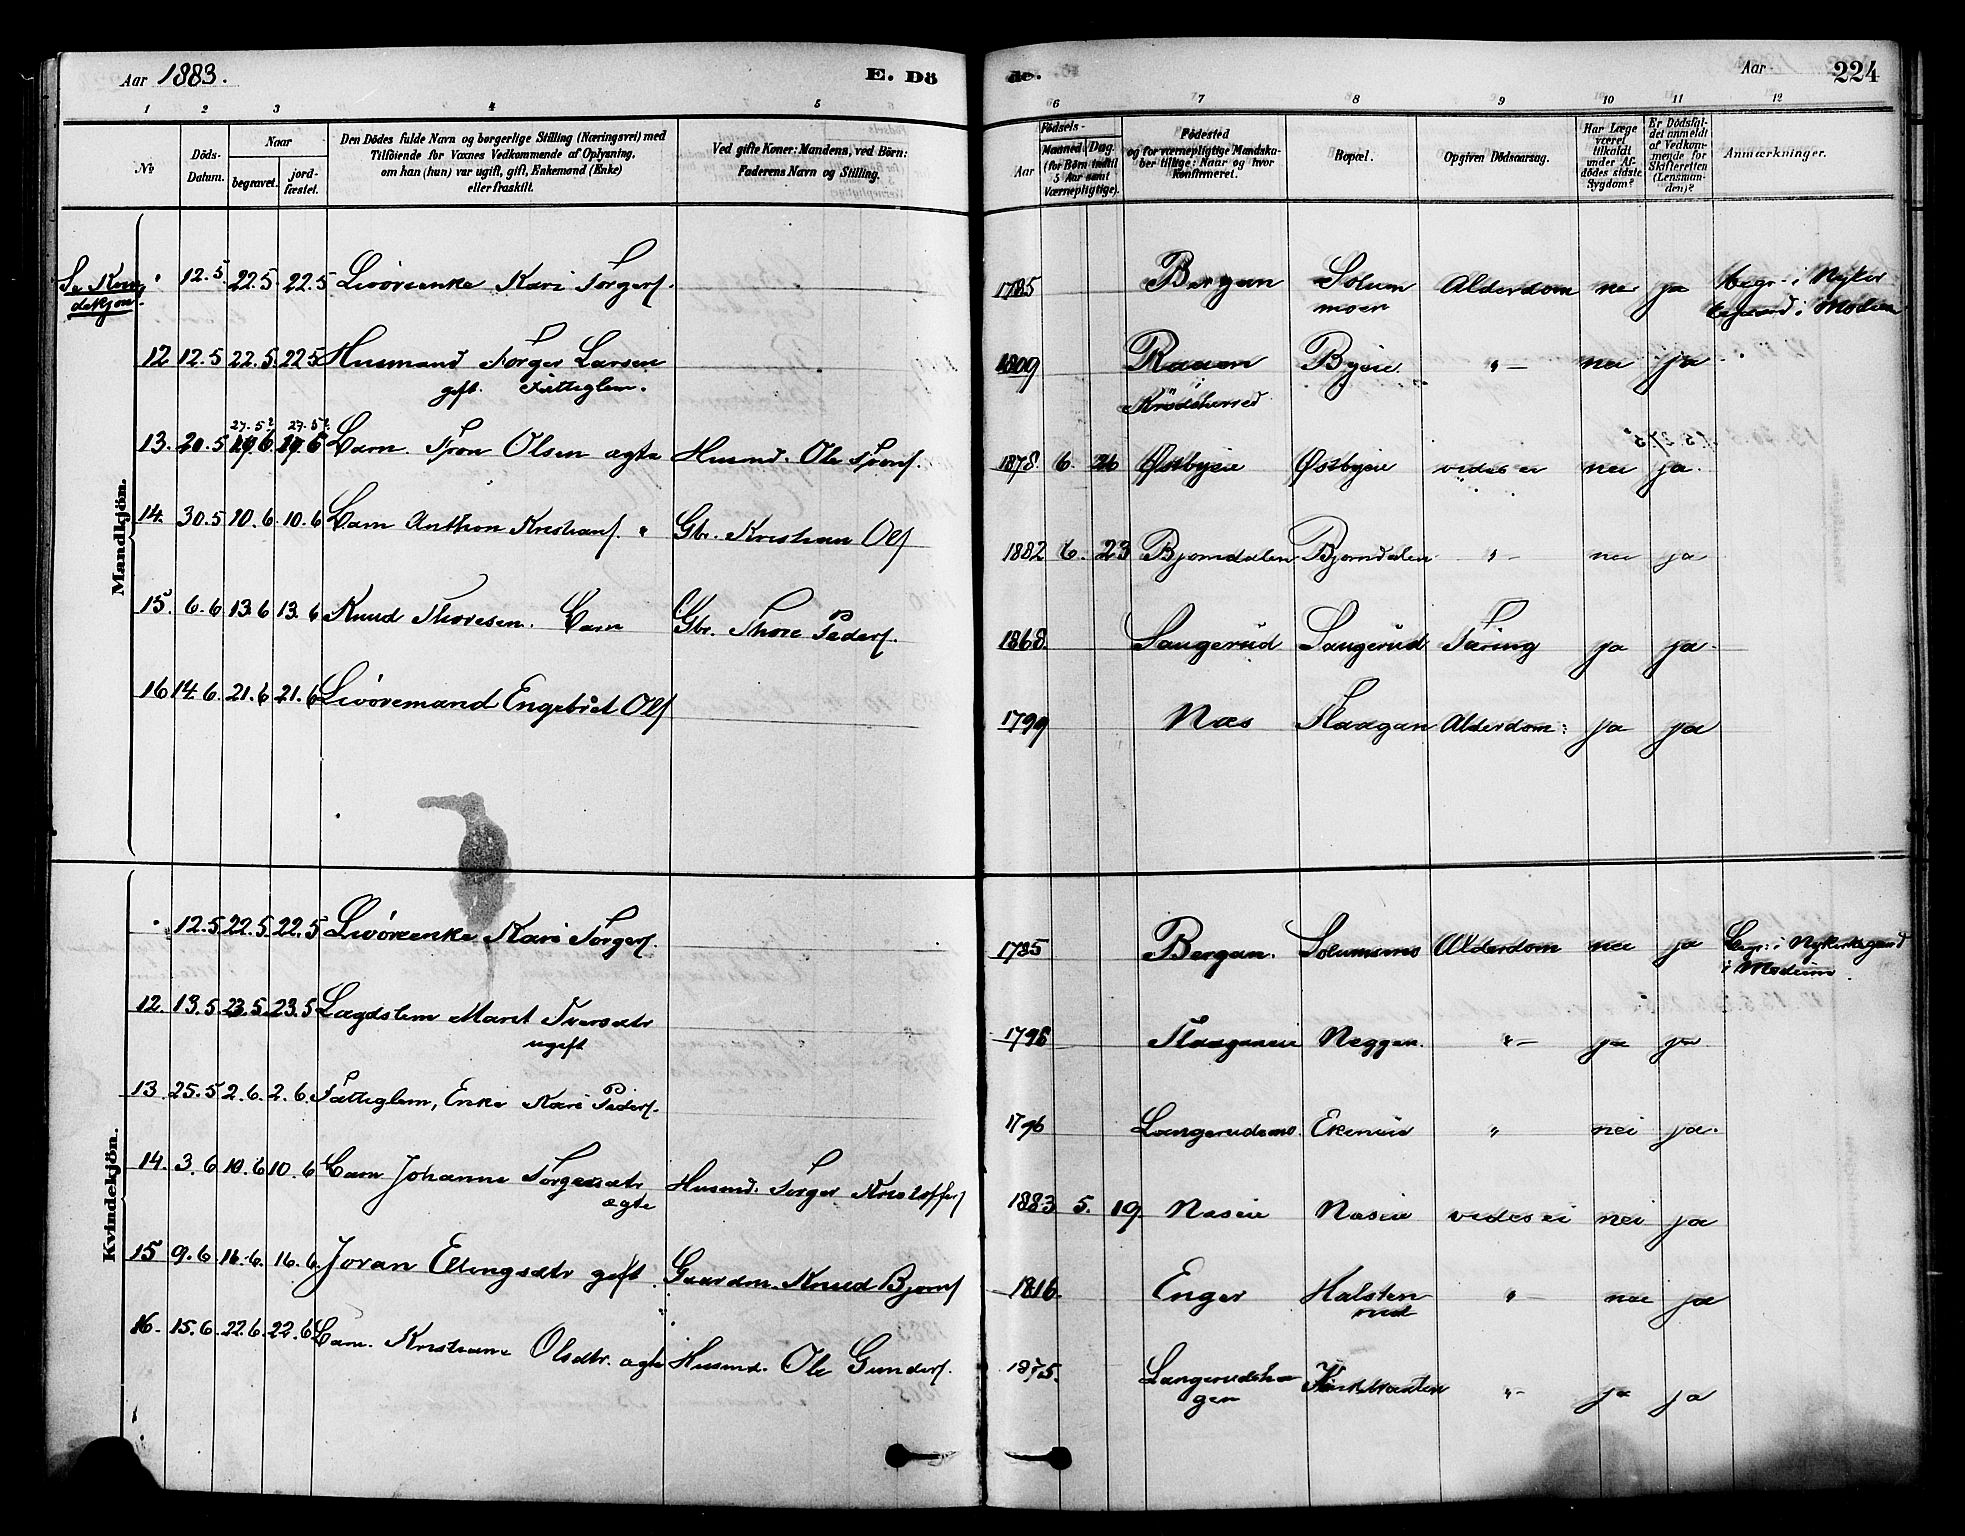 Aar 1883.
E. Dö
de.
Aar
224
1 2 3 4 5 6 7 8 9 10 11 12
No
Döds-Datum.
Naar
begravet.
jord-fæstet.
Den Dödes fulde Navn og borgerlige Stilling (Næringsvei) med
Tilföiende for Voxnes Vedkommende af Oplysning,
om han (hun) var ugift, gift, Enkemand (Enke)
eller fraskilt.
Ved gifte Koner: Mandens, ved Börn:
Faderens Navn og Stilling.
Födsels-
Aar
Maaned. Dag.
(for Börn indtil
5 Aar samt
Værnepligtige).
Födested
og for værnepligtige Mandska-
ber tillige: Naar og hvor
Konfirmeret.
Bopæl.
Opgiven Dödsaarsag.
Har Læge
været
tilkaldt
under Af-
dödes sidste
Sygdom?
Er Dödsfal-
det anmeldt
af Vedkom-
mende for
Skifteretten
(Lensman-
den)?
Anmærkninger.
Mandkjön.
Se Kvin
dekjøn.
12.5 22.5 22.5 Livøreenke Kari Torgers. 1785 Bergan Solum Alderdom nei ja Begr. i Nyker
moen i Modum
12 12.5 22.5. 22 5 Husmand Torger Larsen 1809 Raaen Byeie " — nei ja
gift. Fattiglem. Krödsherred
27.5? 27.5?
13. 20.5 19.6 19.6 Barn. Tron Olsen ægte Husmd. Ole Trons. 1878. 6. 26 Østbyeie Østbyeie vides ei nei ja.
14. 30.5 10.6. 10.6 Barn Anthon Kristians. " Gbr. Kristian Ols 1882 6. 23 Bjorndalen Bjorndalen " — nei ja
15. 6.6 13.6 13.6 Knud Thoresen. Barn Gbr. Thore Peders. 1868. Langerud Langerud Tæring ja ja.
16 14.6. 21.6 21.6 Livøremand Engebret Ols 1799 Næs Flaagan Alderdom. ja ja
Kvindekjön.
12.5 22.5. 22.5 Livøreenke Kari Torgers. 1785 Bergan. Solumsmo Alderdom nei ja Begr. i Nykirkegaard
i Modum.
12. 13.5 23.5. 23.5 Lægdslem Marit Iversdtr 1798 Flaaganeie Neggen. " — ja ja
ugift
13 25.5 2.6. 2.6. Fattiglem, Enke Kari Peders. 1796 Langerudsmo. Ekeneie " nei ja.
14. 3.6 10.6 10.6 Barn Johanne Torgersdtr Husmd. Torger Kristoffers 1883 5. 19. Næseie Næseie vides ei nei ja
ægte
15 9.6 16.6. 16.6. Joran Ellingsdtr gift. Gaardm. Knud Bjorns 1816. Enger Halsten " — nei ja
rud
16. 15.6. 22.6. 22.6 Barn. Kristiane Olsdtr. ægte Husmd. Ole Gunders. 1875. Langerudsha " — ja ja
gen